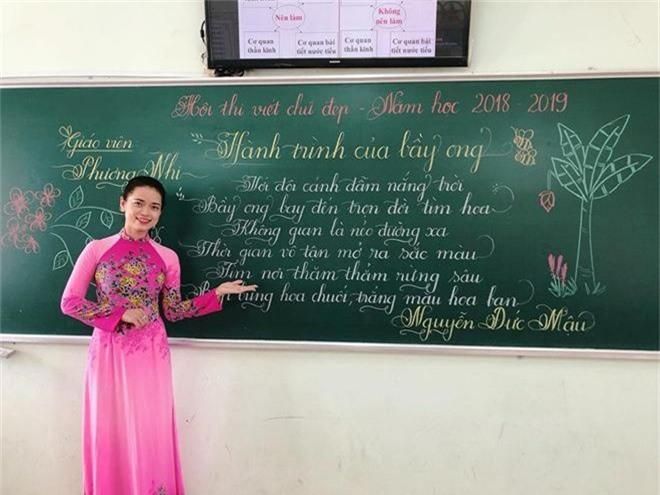 Nên làm
Không nên làm
Cơ quan thần kinh
Cơ quan bài tiết nước tiểu
Cơ quan thần kinh
Cơ quan bài tiết nước tiểu
Hội thi viết chữ đẹp - Năm học 2018 - 2019
Giáo viên
Phương Nhi
Hành trình của bầy ong
Với đôi cánh đẫm nắng trời
Bầy ong bay đến trọn đời tìm hoa
Không gian là nẻo đường xa
Thời gian vô tận mở ra sắc màu
Tìm nơi thăm thẳm rừng sâu
bừng hoa chuối trắng màu hoa ban
Nguyễn Đức Mậu